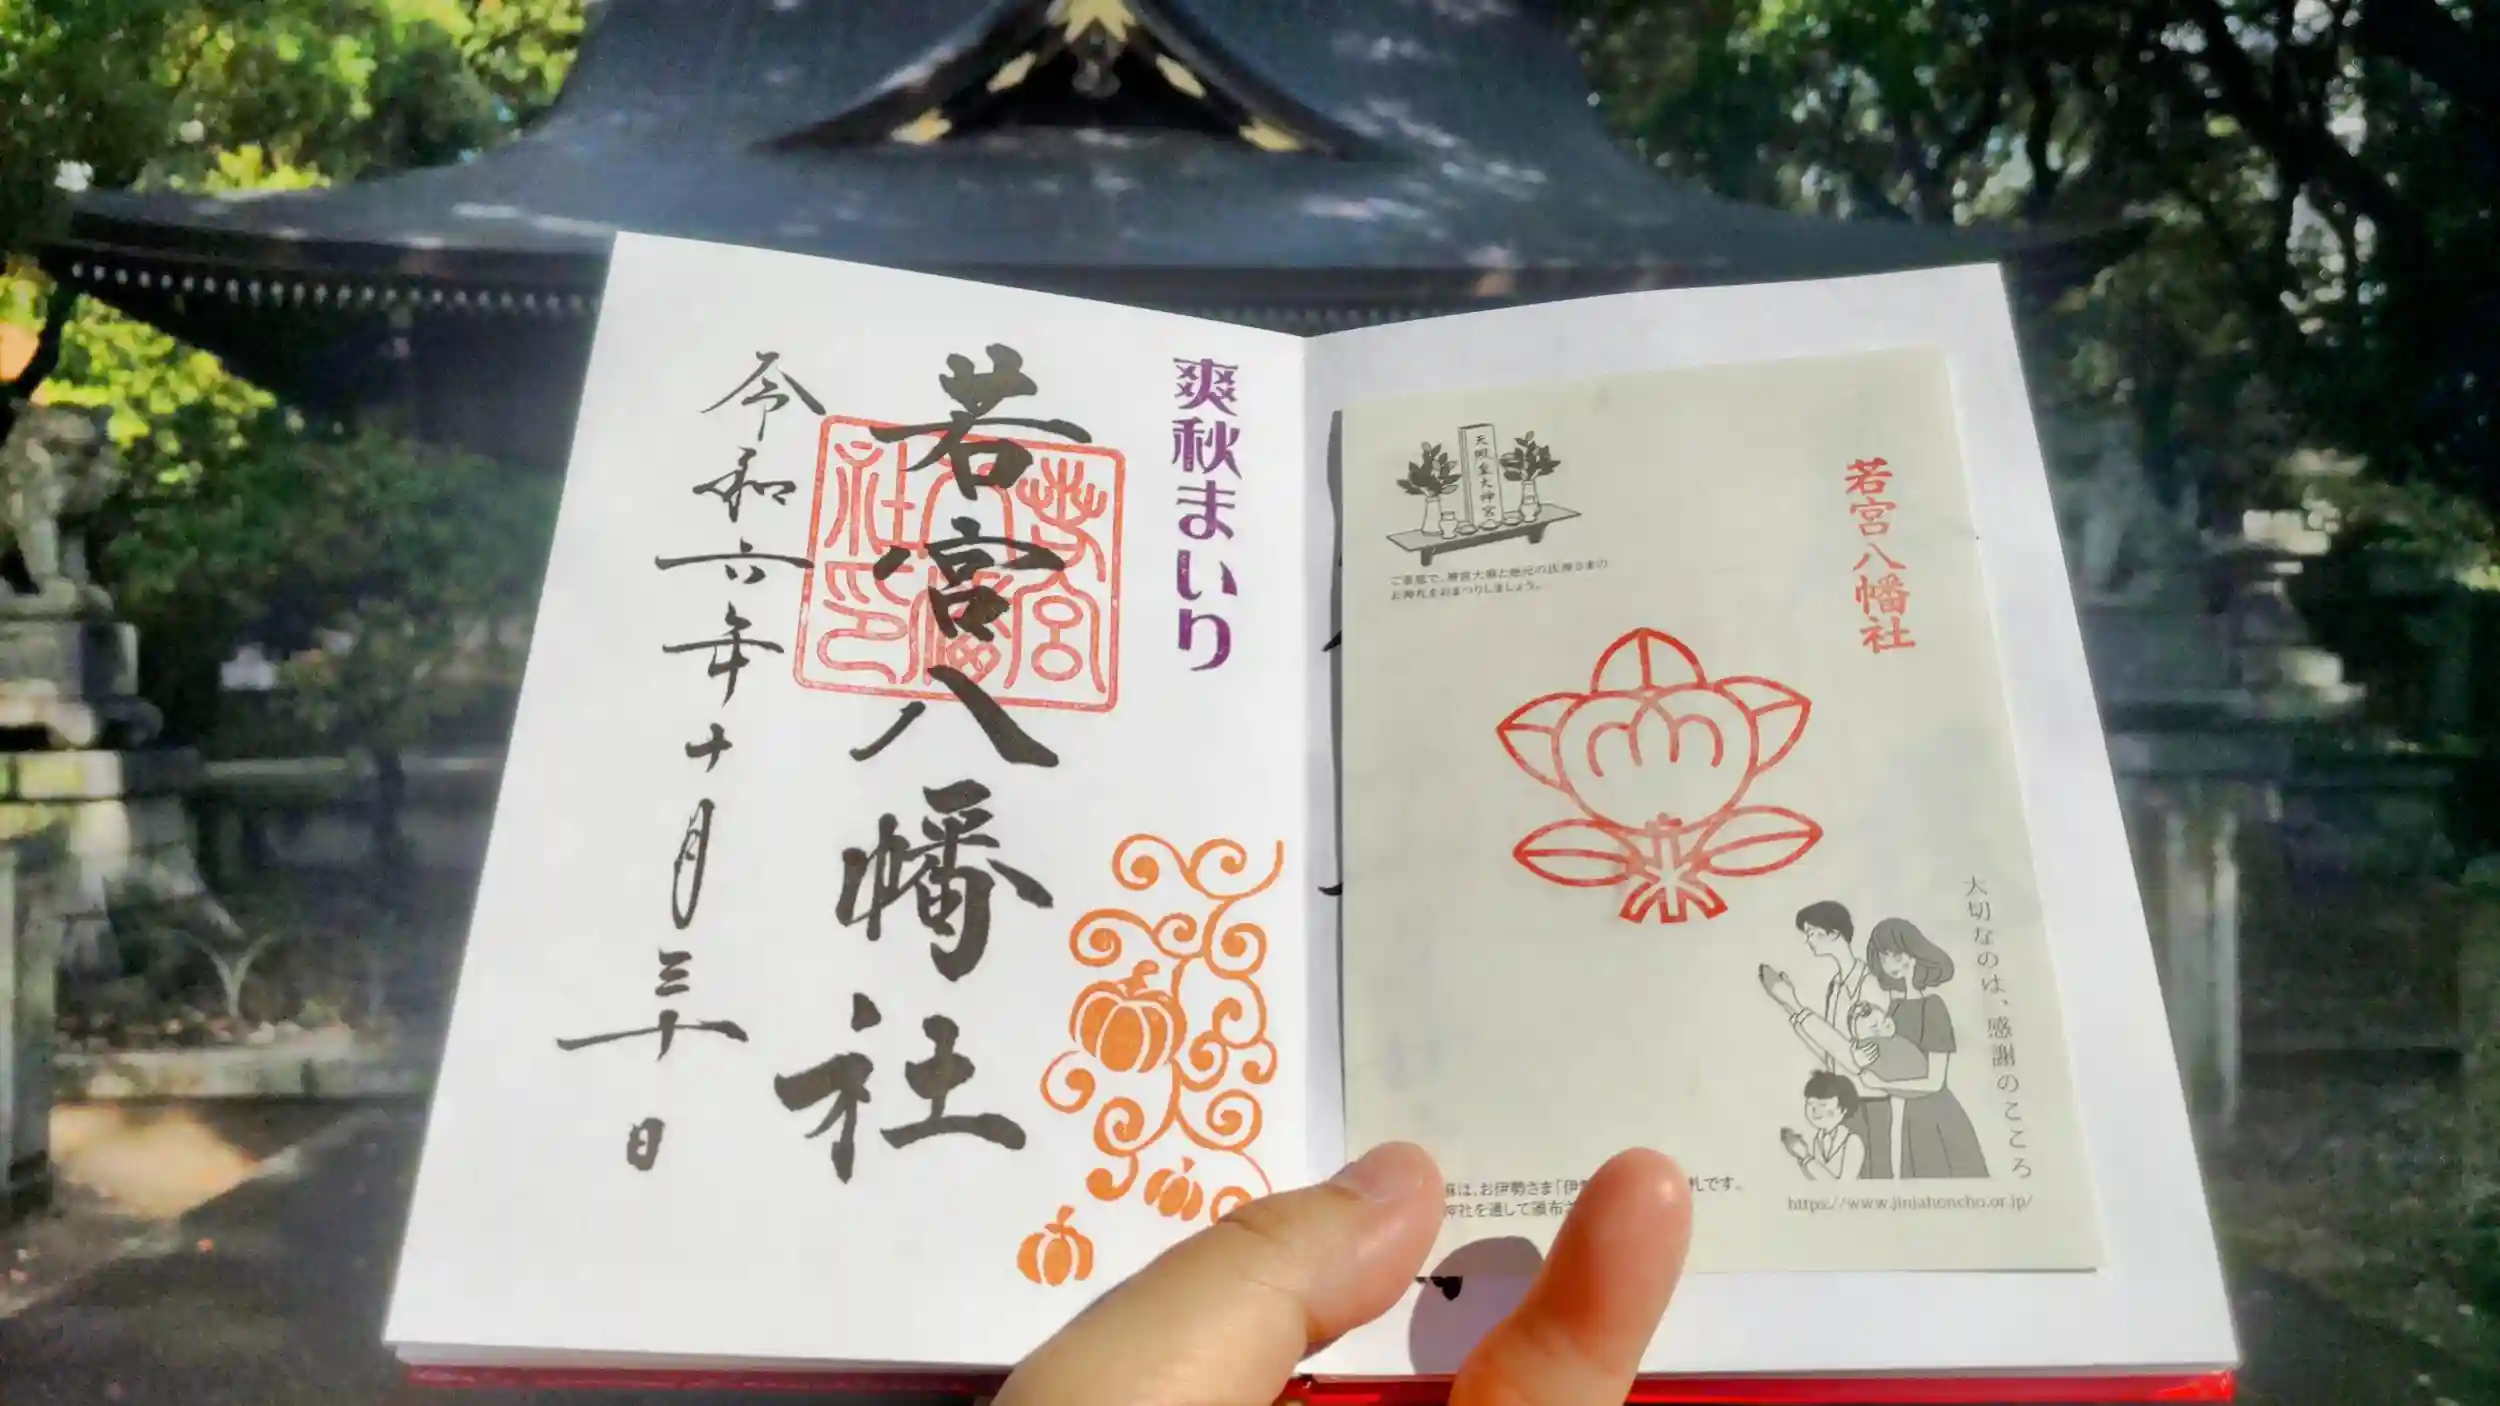 爽秋まいり
若宮八幡社
令和六年十月三十日
若宮八幡社印
若宮八幡社
天照皇大神宮
ご家庭で、神宮大麻と地元の氏神さまの
お神札をおまつりしましょう。
大切なのは、感謝のこころ
麻は、お伊勢さま「伊勢
札です。
神社を通して頒布さ
https://www.jinjahoncho.or.jp/